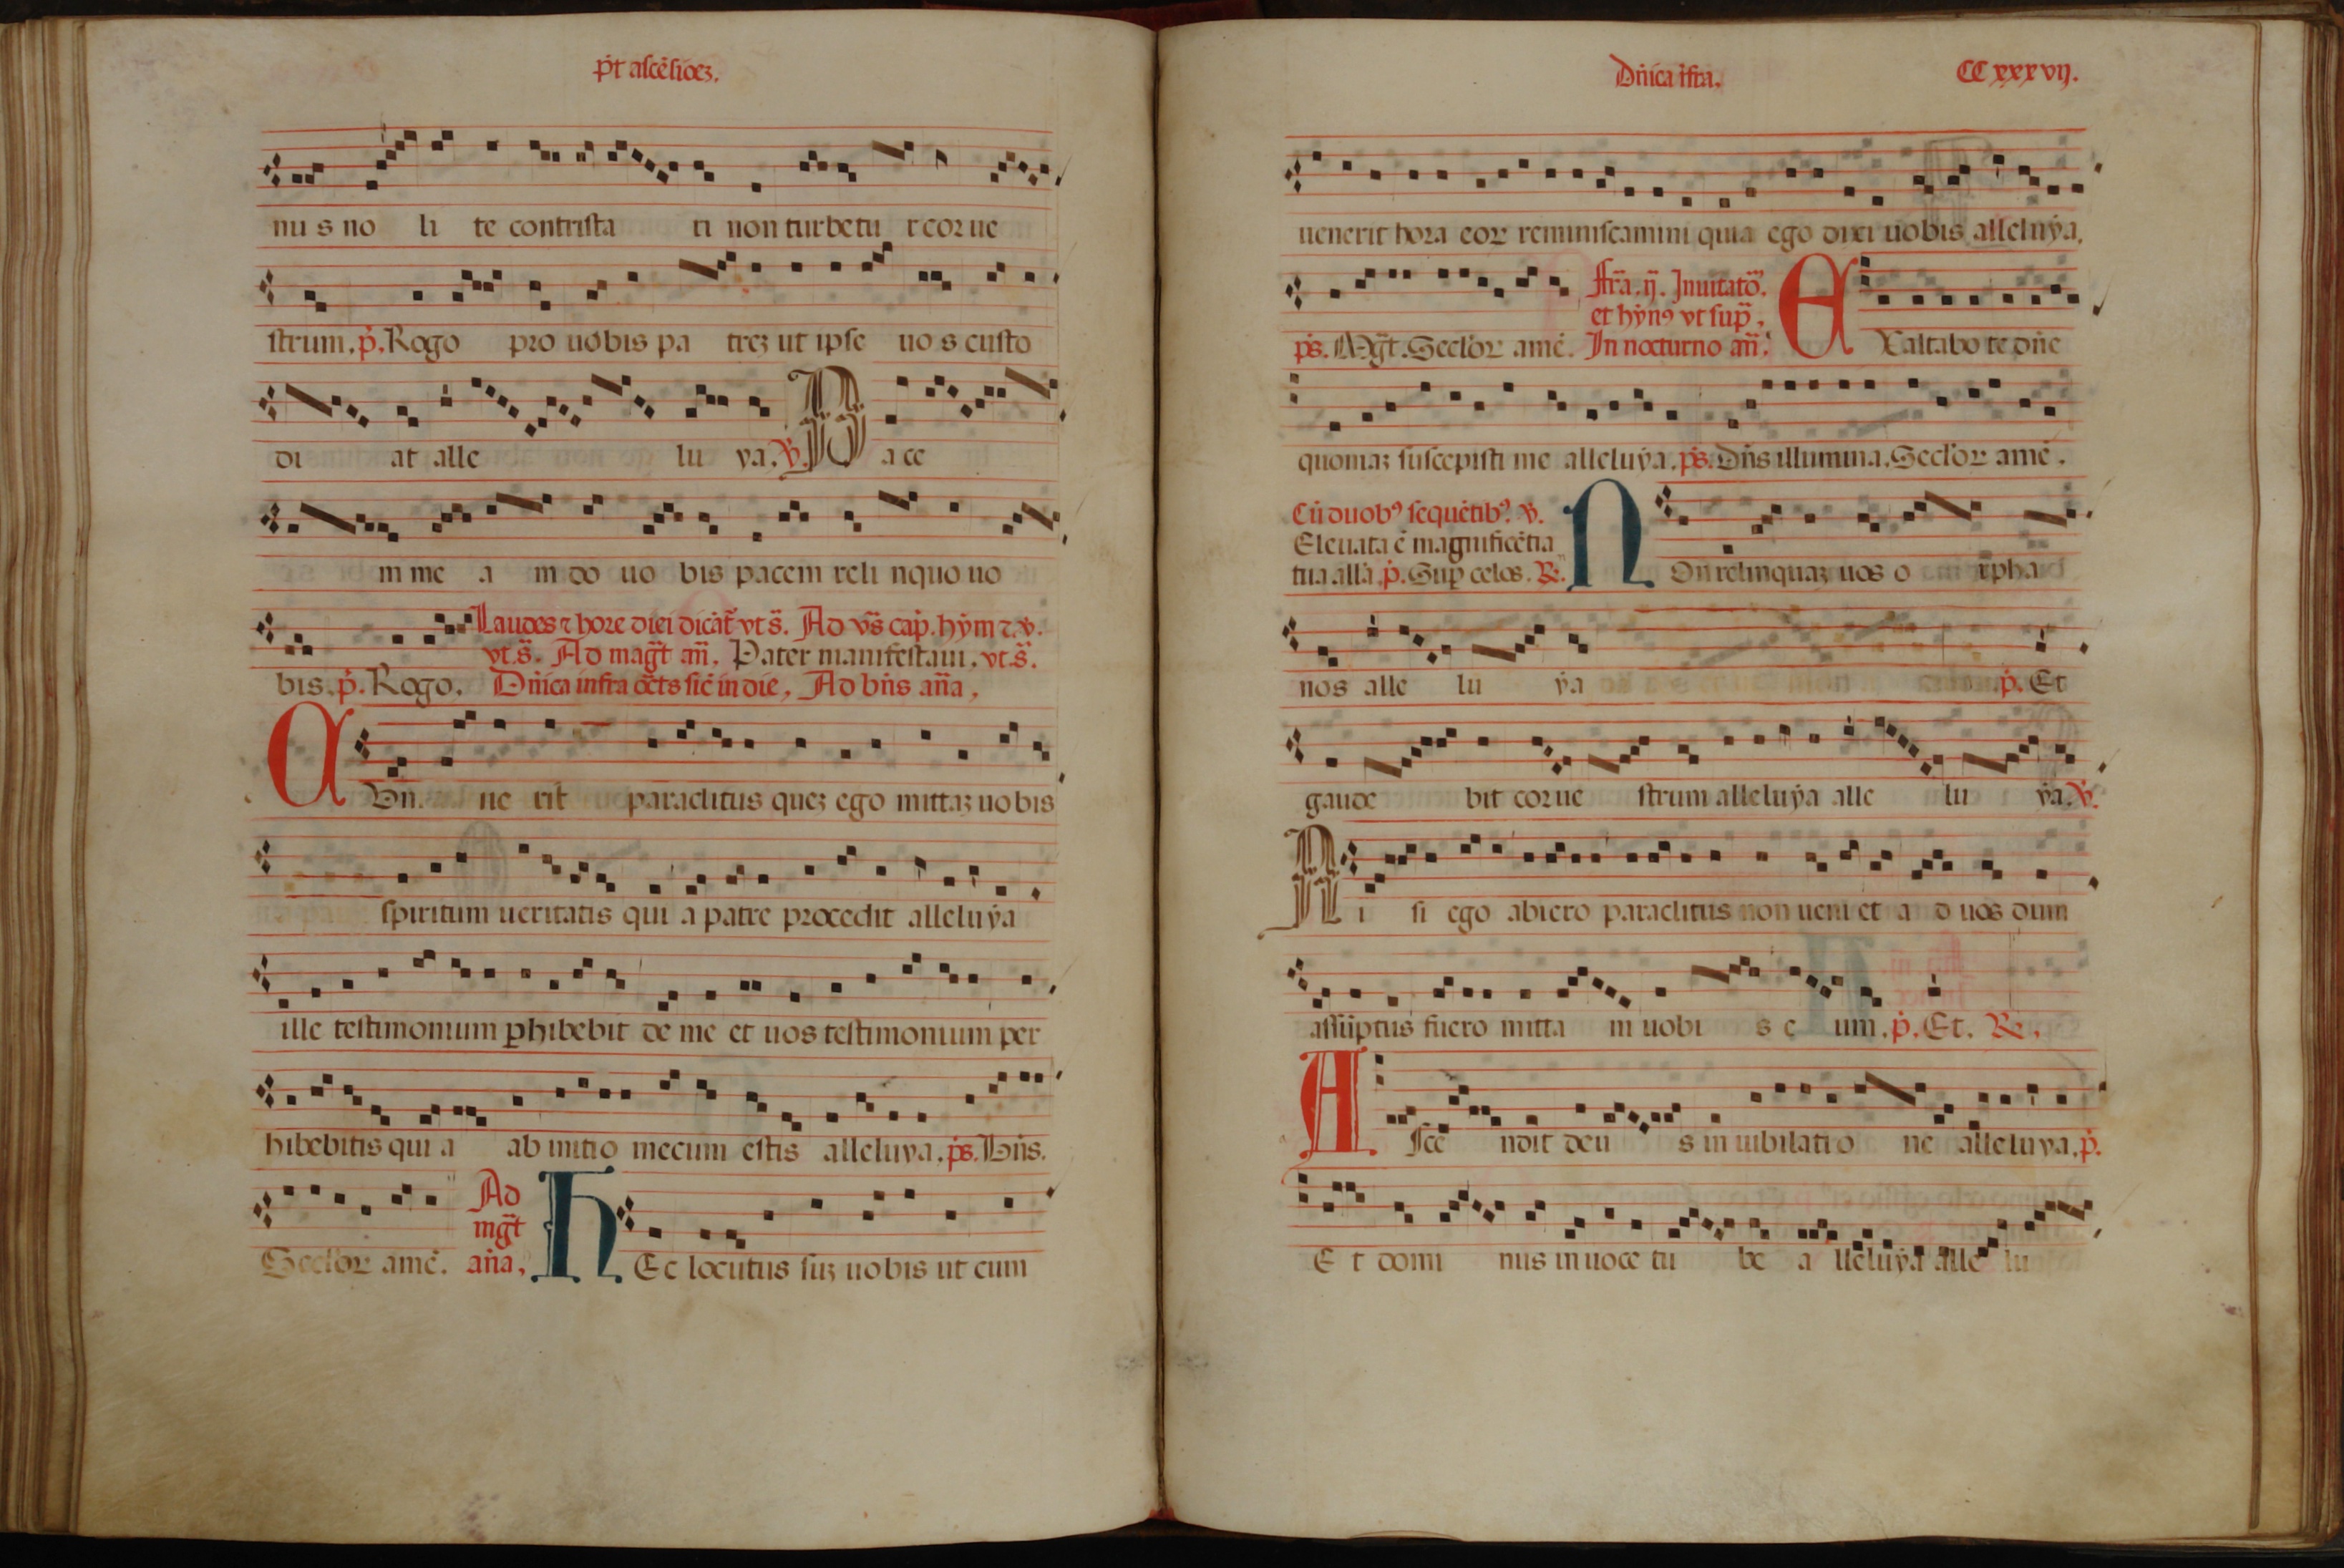 p̄t ascēsiōeʒ.
nu s no li te contrista ti non turbetu r cor ue
strum. p̄. Rogo pro uobis pa treʒ ut ipse uo s custo
di at alle lu ya. V̄. P a ce
m me a m do uo bis pacem reli nquo uo
bis. p̄. Rogo. Laudes ⁊ hore diei dicāt ̄ vt s̄. Ad vs̄ cap̄. hȳm ⁊. v̄.
vt. s̄. Ad maḡt añ. Pater manifestaui. vt. s̄.
Dñica infra octs sic̄ in die, Ad bñs aña,
A Dū. ue rit paraclitus queʒ ego mittaʒ uobis
spiritum ueritatis qui a patre procedit alleluẏa
ille testimonium ꝑhibebit de me et uos testimonium per
hibebitis qui a ab initio mecum estis alleluya. ps̄. Dñs.
Sec̄lor amē. Ad
mḡt
aña, H Ec locutus suʒ uobis ut cum
Dñica īfra. CCxxxvij.
uenerit hora eoꝝ reminiscamini quia ego dixi uobis alleluẏa.
ps̄. Mḡt. Sec̄lor amē. Fr̄a. ij. Inuitatō.
et hẏnꝯ vt sup̄,
In nocturno añ. E Xaltabo te dñe
quoniaʒ suscepisti me alleluẏa. ps̄. Dñs illumina. Sec̄lor amē.
Cū duobꝯ sequētibꝯ. v̄.
Eleuata ē magnificētia
tua allā. p̄. Sup̄ celos. ℞. N On relinquaʒ uos o rpha
nos alle lu ẏa p̄. Et
gaude bit cor ue strum alleluẏa alle lu ẏa. V̄.
N i si ego abiero paraclitus non ueni et a d uos dum
assūptus fuero mitta m uobi s e um. p̄. Et. ℞.
A sce ndit deu s in iubilati o ne alleluya. p̄.
E t domi nus in uoce tu be a lleluẏa alle lu